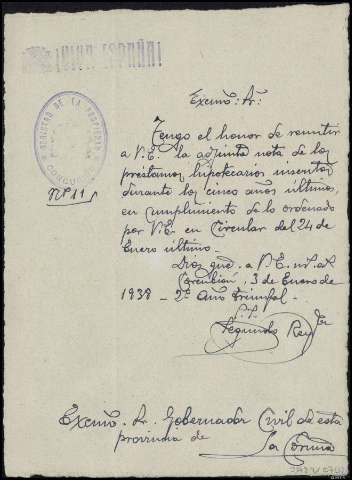 ¡VIVA ESPAÑA!
REGISTRO DE LA PROPIEDAD
CORCUBION
Nº 11
Excmo. Sr.
Tengo el honor de remitir
a V.E. la adjunta nota de los
prestamos hipotecarios inscritos
durante los cinco años ultimos,
en cumplimiento de lo ordenado
por V.E. en Circular del 24 de
Enero ultimo.-
Dios gue. a V.E. m. a.
Corcubion, 3 de Enero de
1938 - 2º Año Triunfal.-
Segundo Rey
Excmo. Sr. Gobernador Civil de esta
provincia de
La Coruña